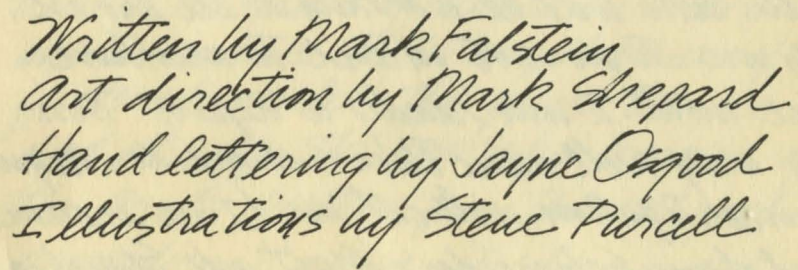 Written by Mark Falstein
Art direction by Mark Shepard
Hand lettering by Jayne Osgood
Illustrations by Steve Purcell